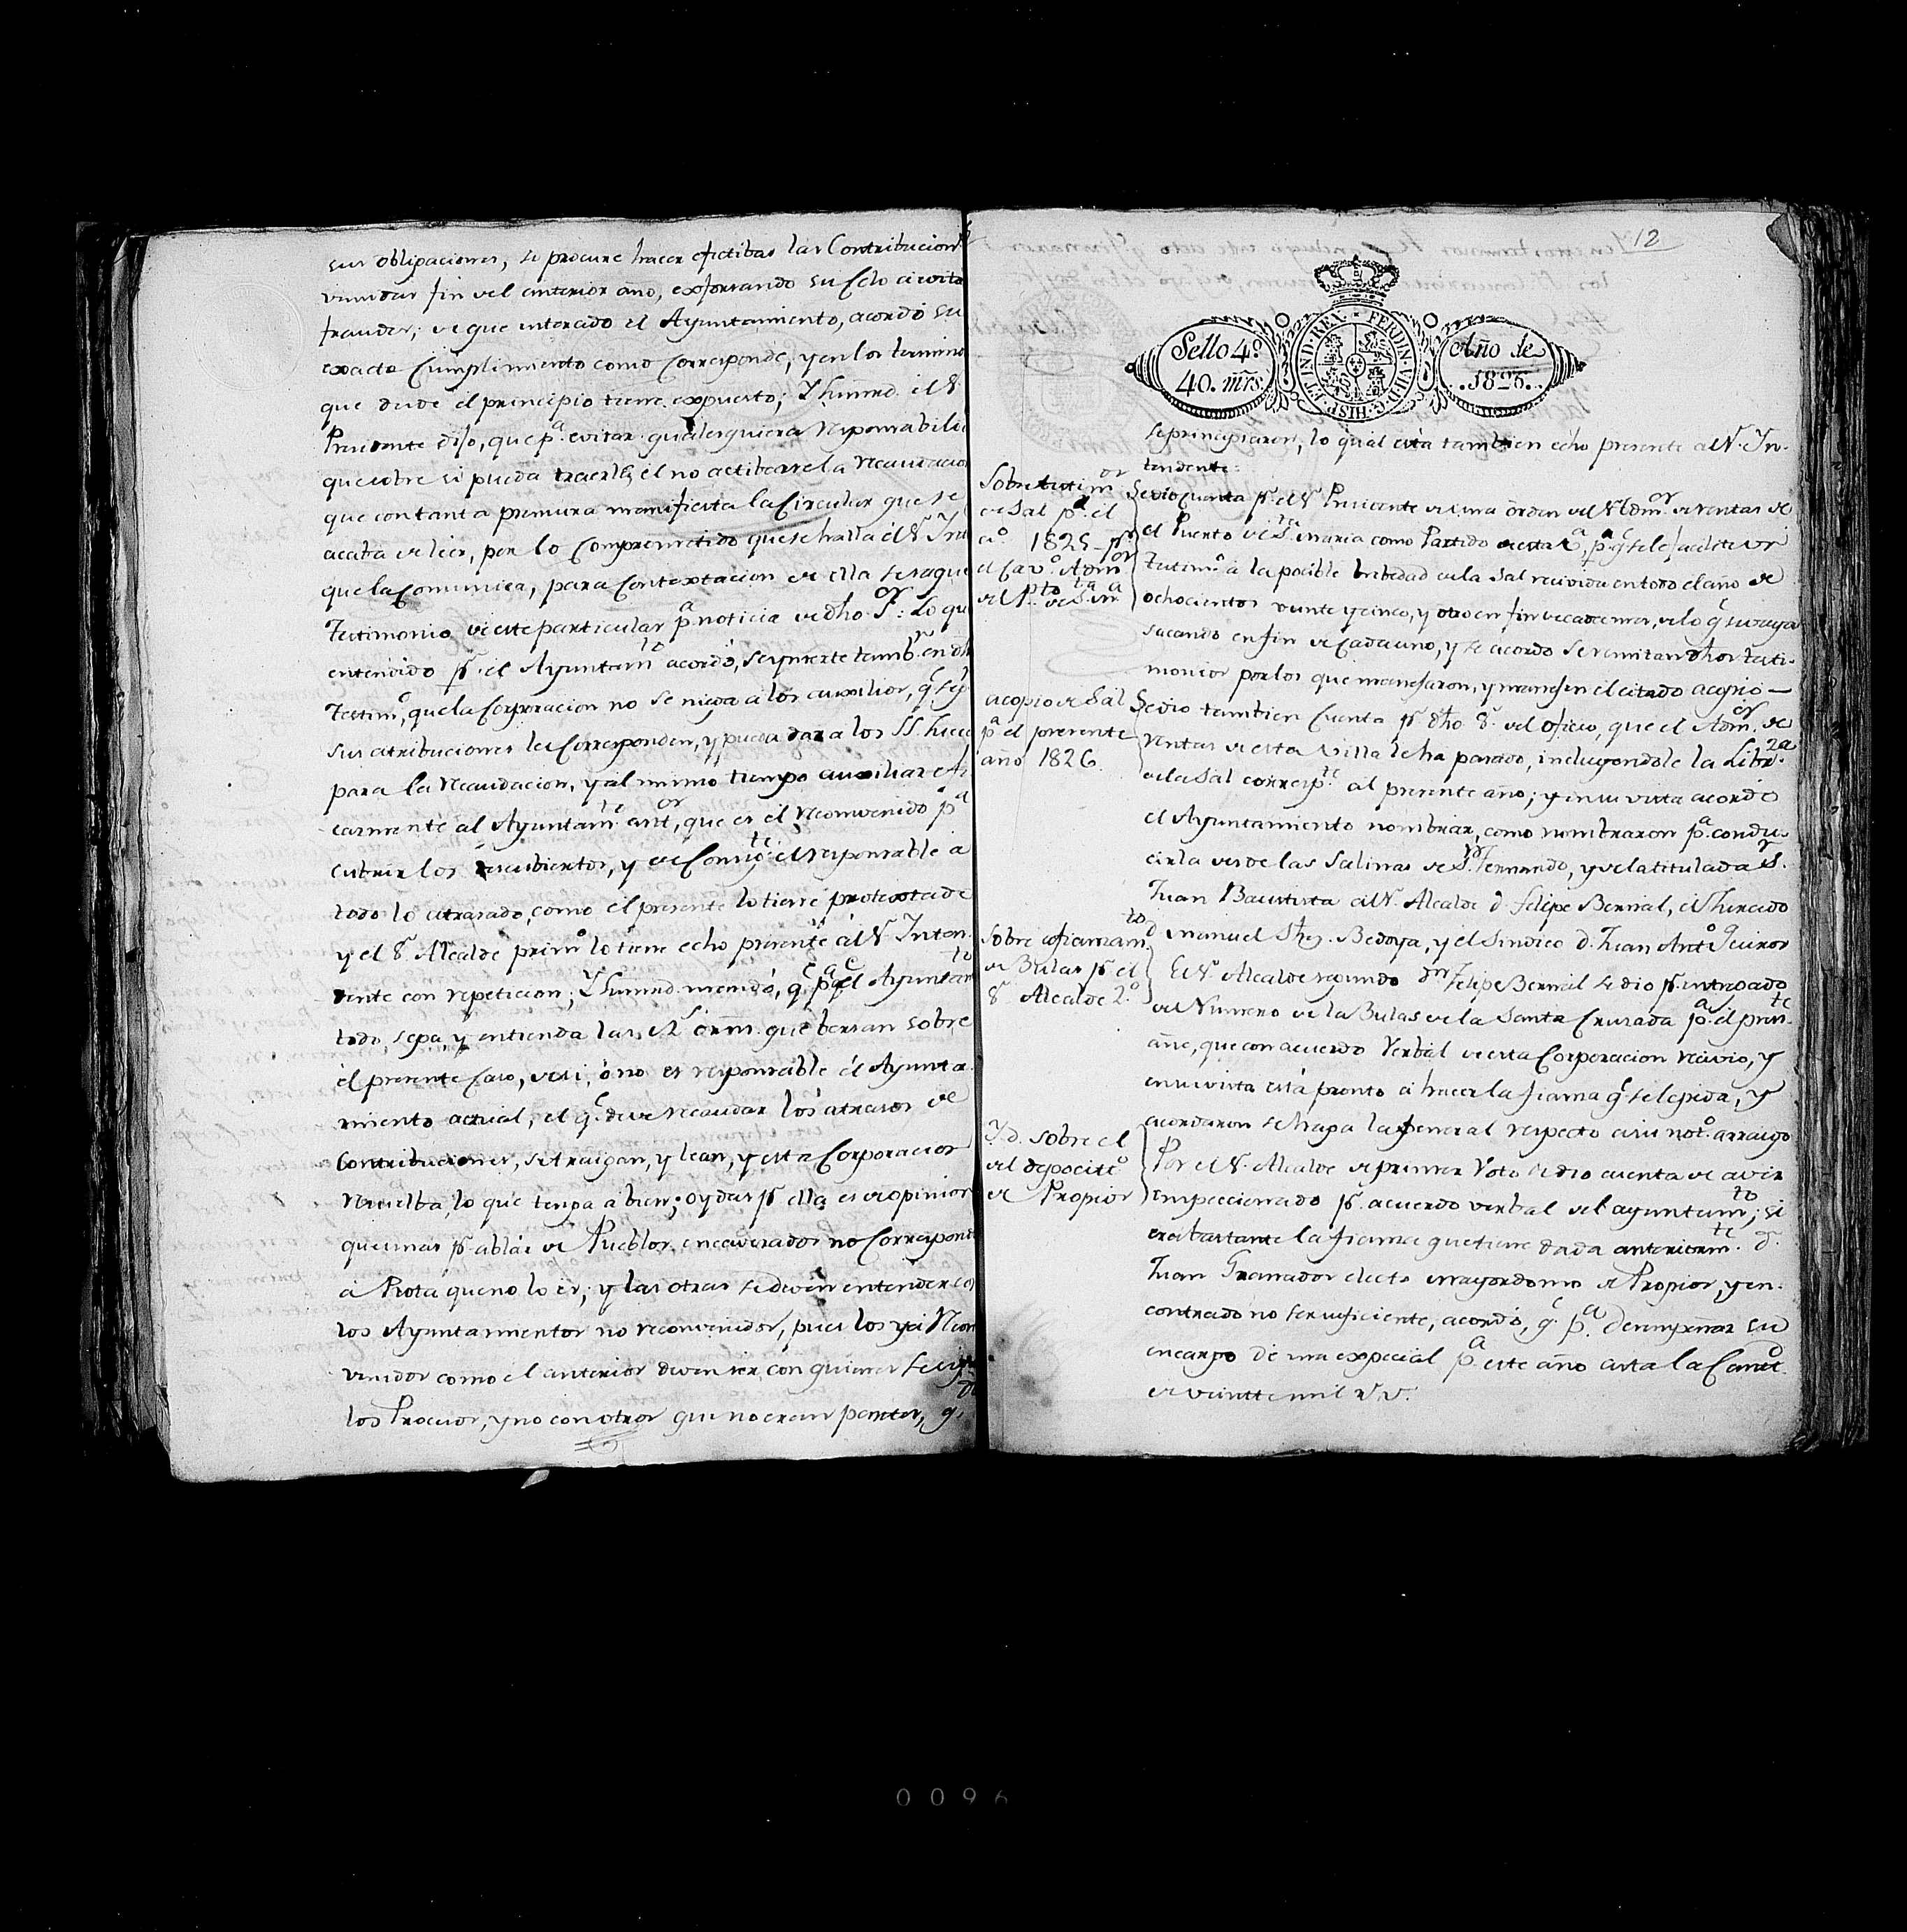 sus obligaciones, se procure hacer efectibas las Contribucion
vencidas fin del anterior año, exforsando su Celo a evitar
fraudes; de que entercado el Ayuntamiento, acordó su
exacto Cumplimiento como Corresponde, y en los termino
que desde el principio tiene expuesto; Y hummd. el S.r
Presidente dijo, que p.a evitar qualesquiera responsabilid
que sobre si pueda traerle el no actibarse la recaudacion
que con tanta premura manifiesta la Circular que se
acaba de leer, por lo Comprometido que se halla él S.r Int
que la Comunica, para Contextacion de ella se saque
Testimonio de este particular p.a noticia de dho S.or: Lo que
entendido p.r el Ayuntam.to acordó, se ynserte tamb.n en dho
Testim.o, que la Corporacion no se niega a los auxilios, q.e seg
sus atribuciones les Corresponden, y pueda dar a los SS.
para la recaudacion, y al mismo tiempo auxiliar
carmente al Ayuntam.to ant.or, que es el reconvenido p.a
cubrir los descubiertos, y de Consig.te el responsable a
todo lo atrasado, como el presente lo tiene protextado
y el S.r Alcalde prim.o lo tiene echo presente ál S.r Inten
dente con repeticion; Y hummd. mandó, q.e p.a q.e el Ayuntam.to
todo, sepa, y entienda las R.s orn.s que bersan sobre
el presente Caso, de si, ó no es responsable él Ayunta-
miento actual, el q.e deve recaudar los atrasos de
Contribuciones, se traigan, y lean, y esta Corporacion
resuelba, lo que tenga a bien; oydas p.r ella es de opinion
que unas p.r ablar de Pueblos encavezados no Corresponde
á Rota que no lo es; y las otras se deven entender co
los Ayuntamientos no reconvenidos, pues los ya Recon
venidos como el anterior deven ser, con quienes se sigan
los Procesos, y no con otros que no eran partes, q.do
12
Sello 4º
40. mrs.
HISP. ET IND. REX. FERDIN. VII. D. G.
Año de
1825.
se principiaron, lo qual está tambien echo presente al S.r In-
tendente:
Sobre testim.o
de Sal p.a el
a.o 1825 p.r
el Cav.o Adm.or
del P.to de S.ta M.a
Se dio Cuenta p.r el S.r Presidente de una orden del S.r Adm.or de rentas de
el Puerto de S.ta Maria como Partido de esta V.a, p.a q.e se le facilite un
testim.o a la pocible brebedad de la Sal recivida en todo el año de
ochocientos veinte y cinco, y otro en fin de cada mes, de lo q.e se vaya
sacando en fin de Cada uno, y se acordo se remitan dhos testi-
monios por los que manejaron, y manejen el citado acopio—
acopio de Sal
p.a el presente
año 1826.
Se dio tambien Cuenta p.r dho S.r del oficio, que el Adm.or de
rentas de esta Villa le ha pasado, incluyendole la Libr.za
de la Sal corresp.te al presente año; y en su vista acordó
el Ayuntamiento nombrar, como nombraron p.a condu-
cirla desde las Salinas de S.n Fernando, y de la titulada S.n
Juan Bautista al S.r Alcalde d. Felipe Bernal, el
d. Manuel Bedoya, y el Sindico d. Juan Ant.o Quiros
Sobre afianzam.to
de Bulas p.r el
S.r Alcalde 2.o
El S.r Alcalde segundo d.n Felipe Bernal se dio p.r entregado
del Numero de la Bulas de la Santa Crusada p.a el pres.te
año, que con acuerdo Verbal de esta Corporacion recivio, y
en su vista está pronto á hacer la fiansa q.e se le pida, y
acordaron se haga la General respecto a su not.o arraigo
Yd. sobre el
del depocit.o
de Propios
Por el S.r Alcalde de primer Voto se dio cuenta de aver
inspeccionado p.r acuerdo verbal del ayuntam.to, si
era bastante la fiansa que tiene dada anteriorm.te d.
Juan Granados electo mayordomo de Propios, y en-
contrado no ser suficiente, acordó, q.e p.a desempeñar su
encargo de una expecial p.a este año asta la Cantid.
de veinte mil r.s v.n
0096